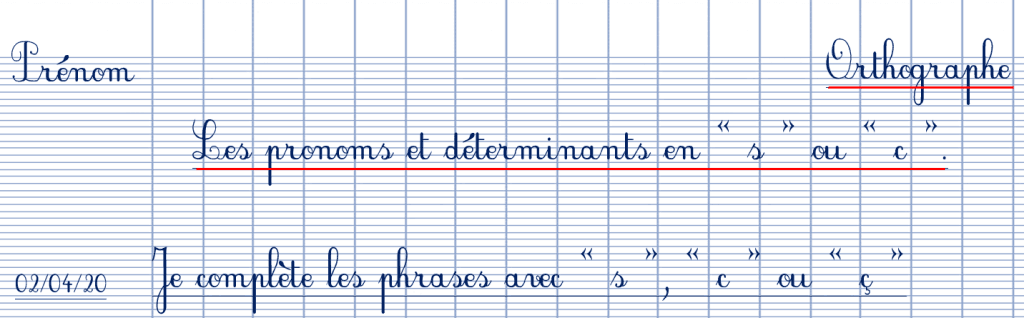 Prénom Orthographe
Les pronoms et déterminants en « s » ou « c ».
02/04/20 Je complète les phrases avec « s », « c » ou « ç »